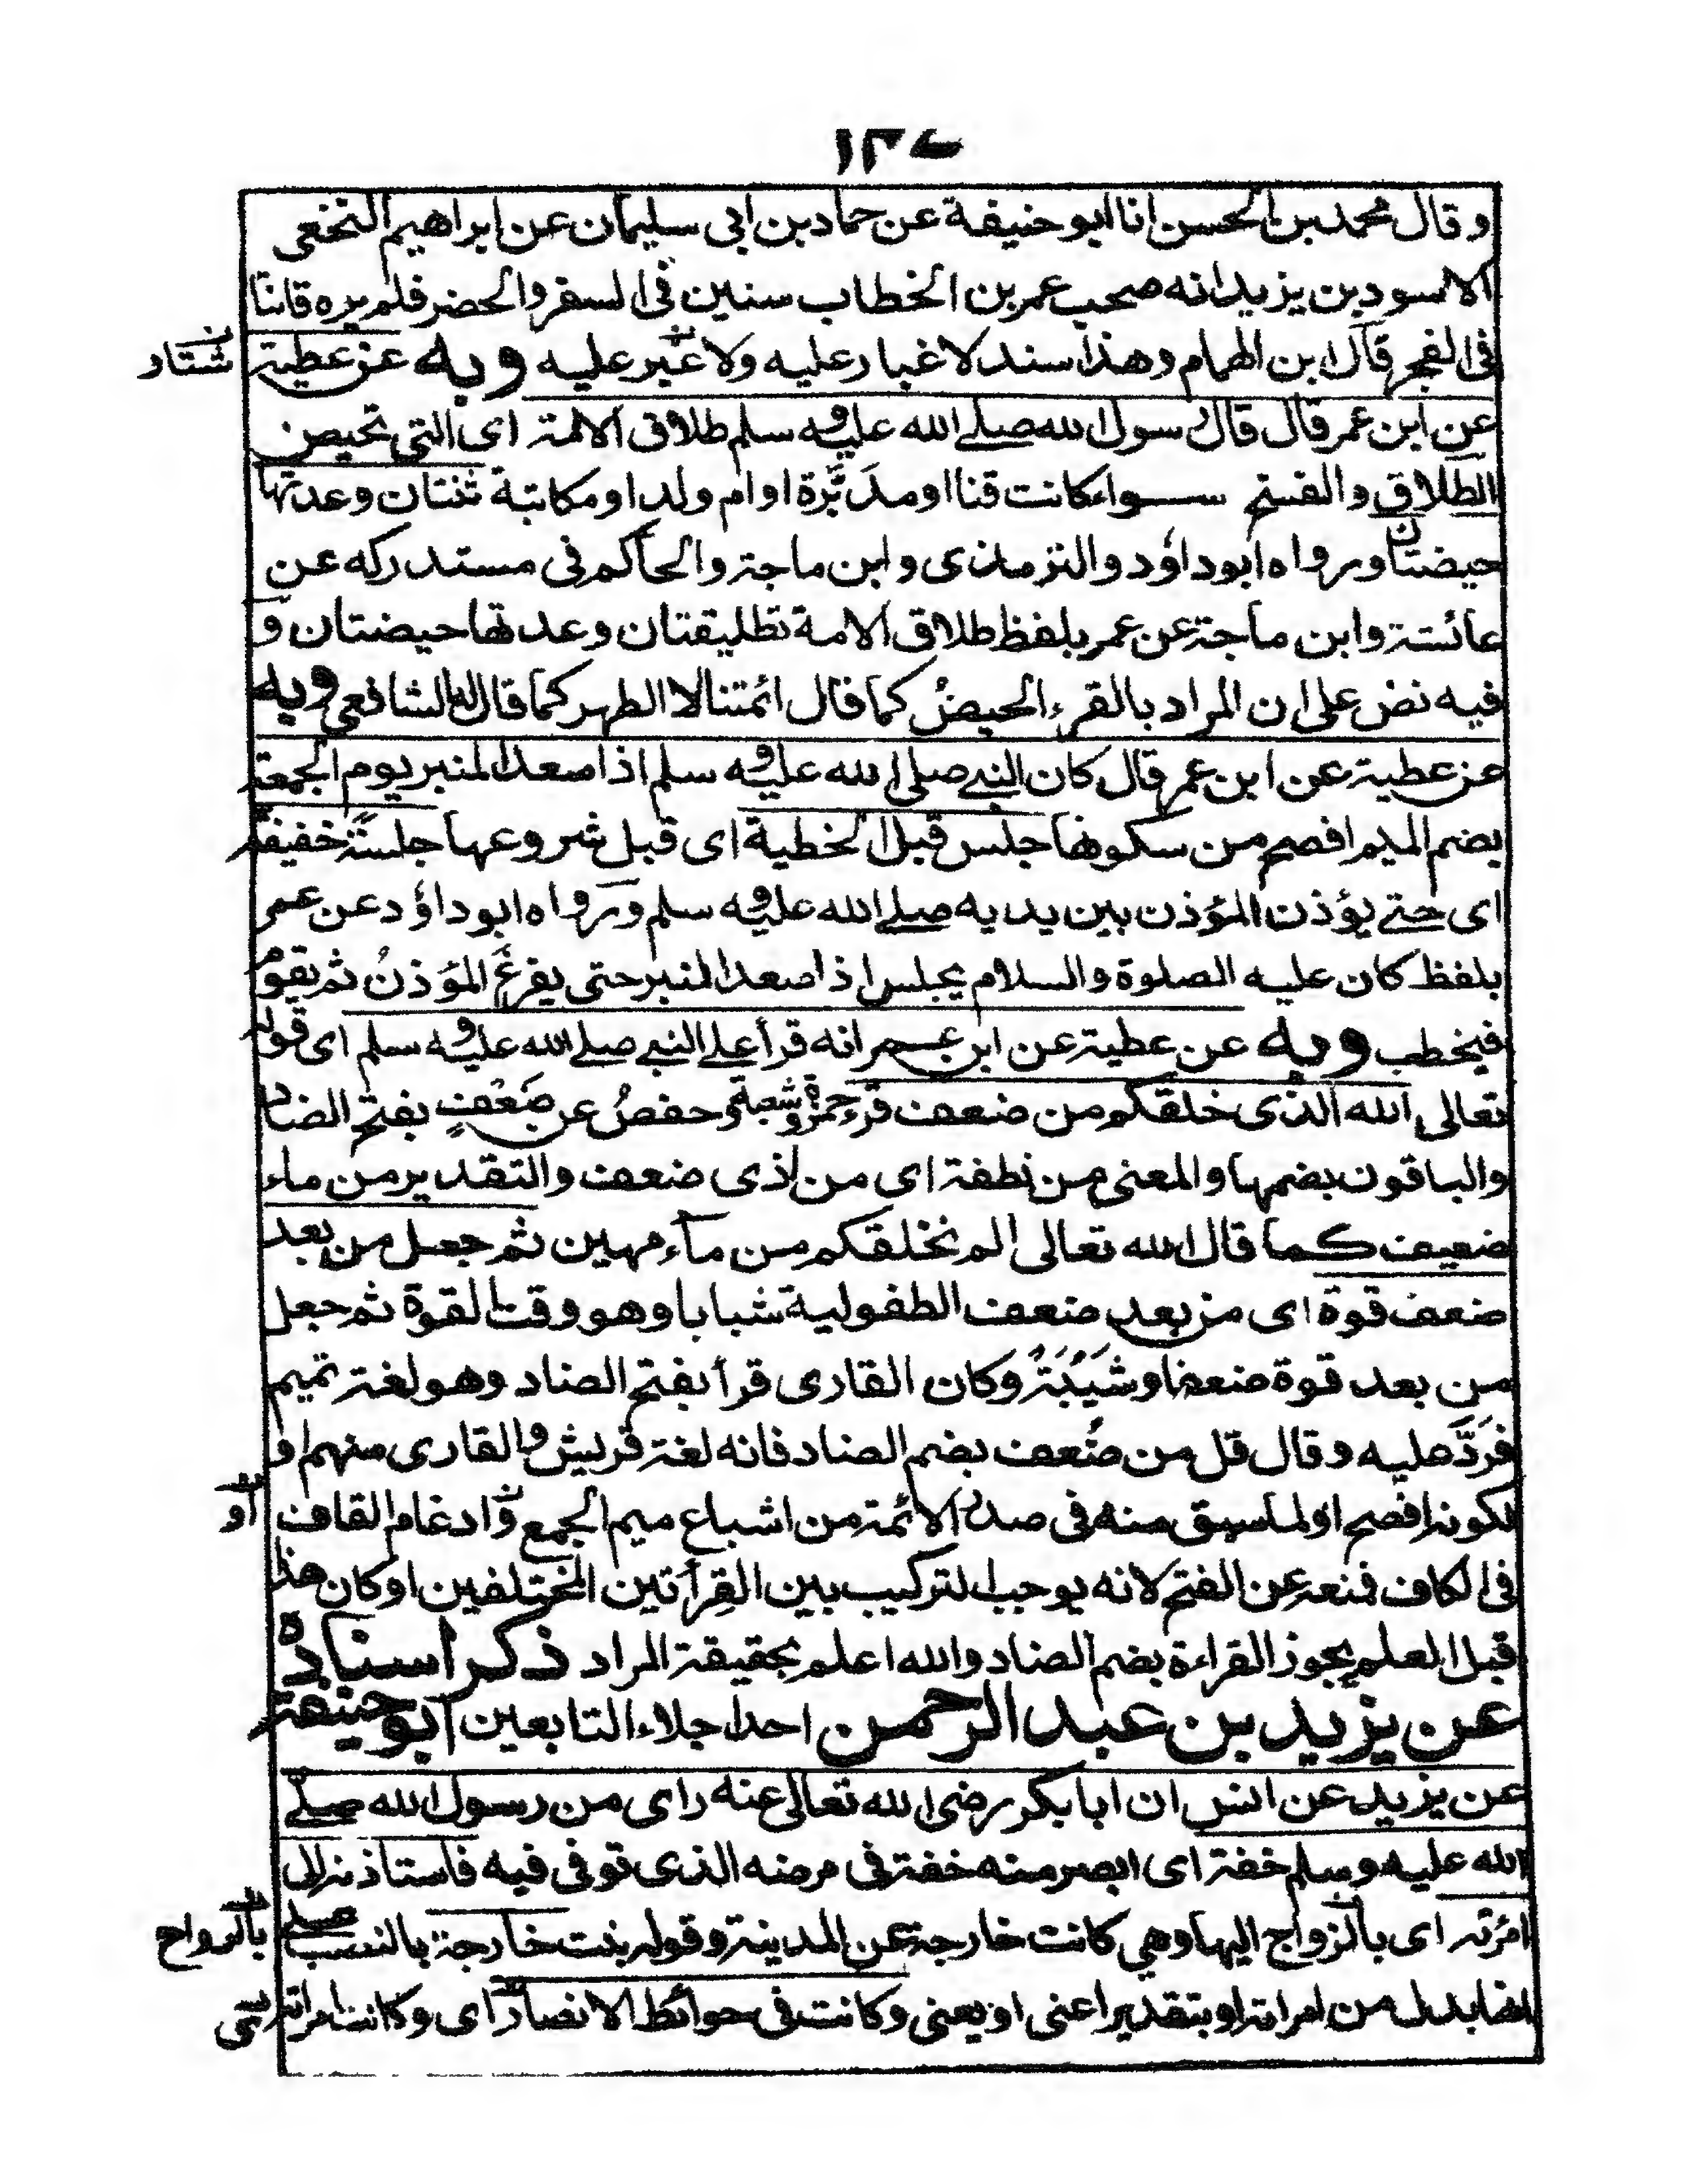 ١٣٧
وقال محمد بن الحسن انا ابو حنيفة عن حماد بن ابى سليمان عن ابراهيم النخعى
الاسود بن يزيد انه صحب عمر بن الخطاب سنين فى السفر والحضر فلم يره قانتا
فى الفجر قال ابن الهمام وهذا سند لا غبار عليه ولا غبر عليه وبه عن عطية
عن ابن عمر قال قال رسول الله صلى الله عليه وسلم طلاق الامة اى التى تحيض
الطلاق والفسخ سواء كانت قنا او مدَبَّرة او ام ولد او مكاتبة ثنتان وعدتها
حيضتان ورواه ابو داؤد والترمذى وابن ماجة والحاكم فى مستدركه عن
عائشة وابن ماجة عن عمر بلفظ طلاق الامة تطليقتان وعدتها حيضتان و
فيه نص على ان المراد بالقرء الحيضُ كما قال ائمتنا لا الطهر كما قاله الشافعى وبه
عن عطية عن ابن عمر قال كان النبى صلى الله عليه وسلم اذا صعد المنبر يوم الجمعة
بضم الميم افصح من سكونها جلس قبل الخطبة اى قبل شروعها جلسة خفيفة
اى حتى يؤذن المؤذن بين يديه صلى الله عليه وسلم ورواه ابو داؤد عن عمر
بلفظ كان عليه الصلوة والسلام يجلس اذا صعد المنبر حتى يفرغَ المؤذنُ ثم يقوم
فيخطب وبه عن عطية عن ابن عمر انه قرأ على النبى صلى الله عليه وسلم اى قوله
تعالى الله الذى خلقكم من ضعف قرء حمزة وشعبة وحفصُ عن ضَعْفٍ بفتح الضاد
والباقون بضمها والمعنى من نطفة اى من ذى ضعف والتقدير من ماء
ضعيف كما قال الله تعالى الم نخلقكم من مآء مهين ثم جعل من بعد
ضعف قوة اى من بعد ضعف الطفولية شبابا وهو وقت القوة ثم جعل
من بعد قوة ضعفا وشَيْبَةً وكان القارى قرأ بفتح الضاد وهو لغة تميم
فرَدَّ عليه وقال قل من ضُعف بضم الضاد فانه لغة قريش والقارى منهم او
لكونه افصح او لما سبق منه فى صدر الائمة من اشباع ميم الجمع وادغام القاف
فى الكاف فمنعه عن الفتح لانه يوجب التركيب بين القِرأتين المختلفين او كان هذا
قبل العلم بجوز القراءة بضم الضاد والله اعلم بحقيقة المراد ذكر اسناده
عن يزيد بن عبد الرحمن احد اجلاء التابعين ابو حنيفة
عن يزيد عن انس ان ابا بكر رضى الله تعالى عنه راى من رسول الله صلى
الله عليه وسلم خفة اى ابصر منه خفة فى مرضه الذى توفى فيه فاستاذنه الى
امرته اى بالزواج اليها وهي كانت خارجة عن المدينة وقوله بنت خارجة بالنصب
ايضا بدل من امراته او بتقدير اعنى او يعنى وكانت فى حوائط الانصار اى وكانت امراته
شتاد
او
بالرواح